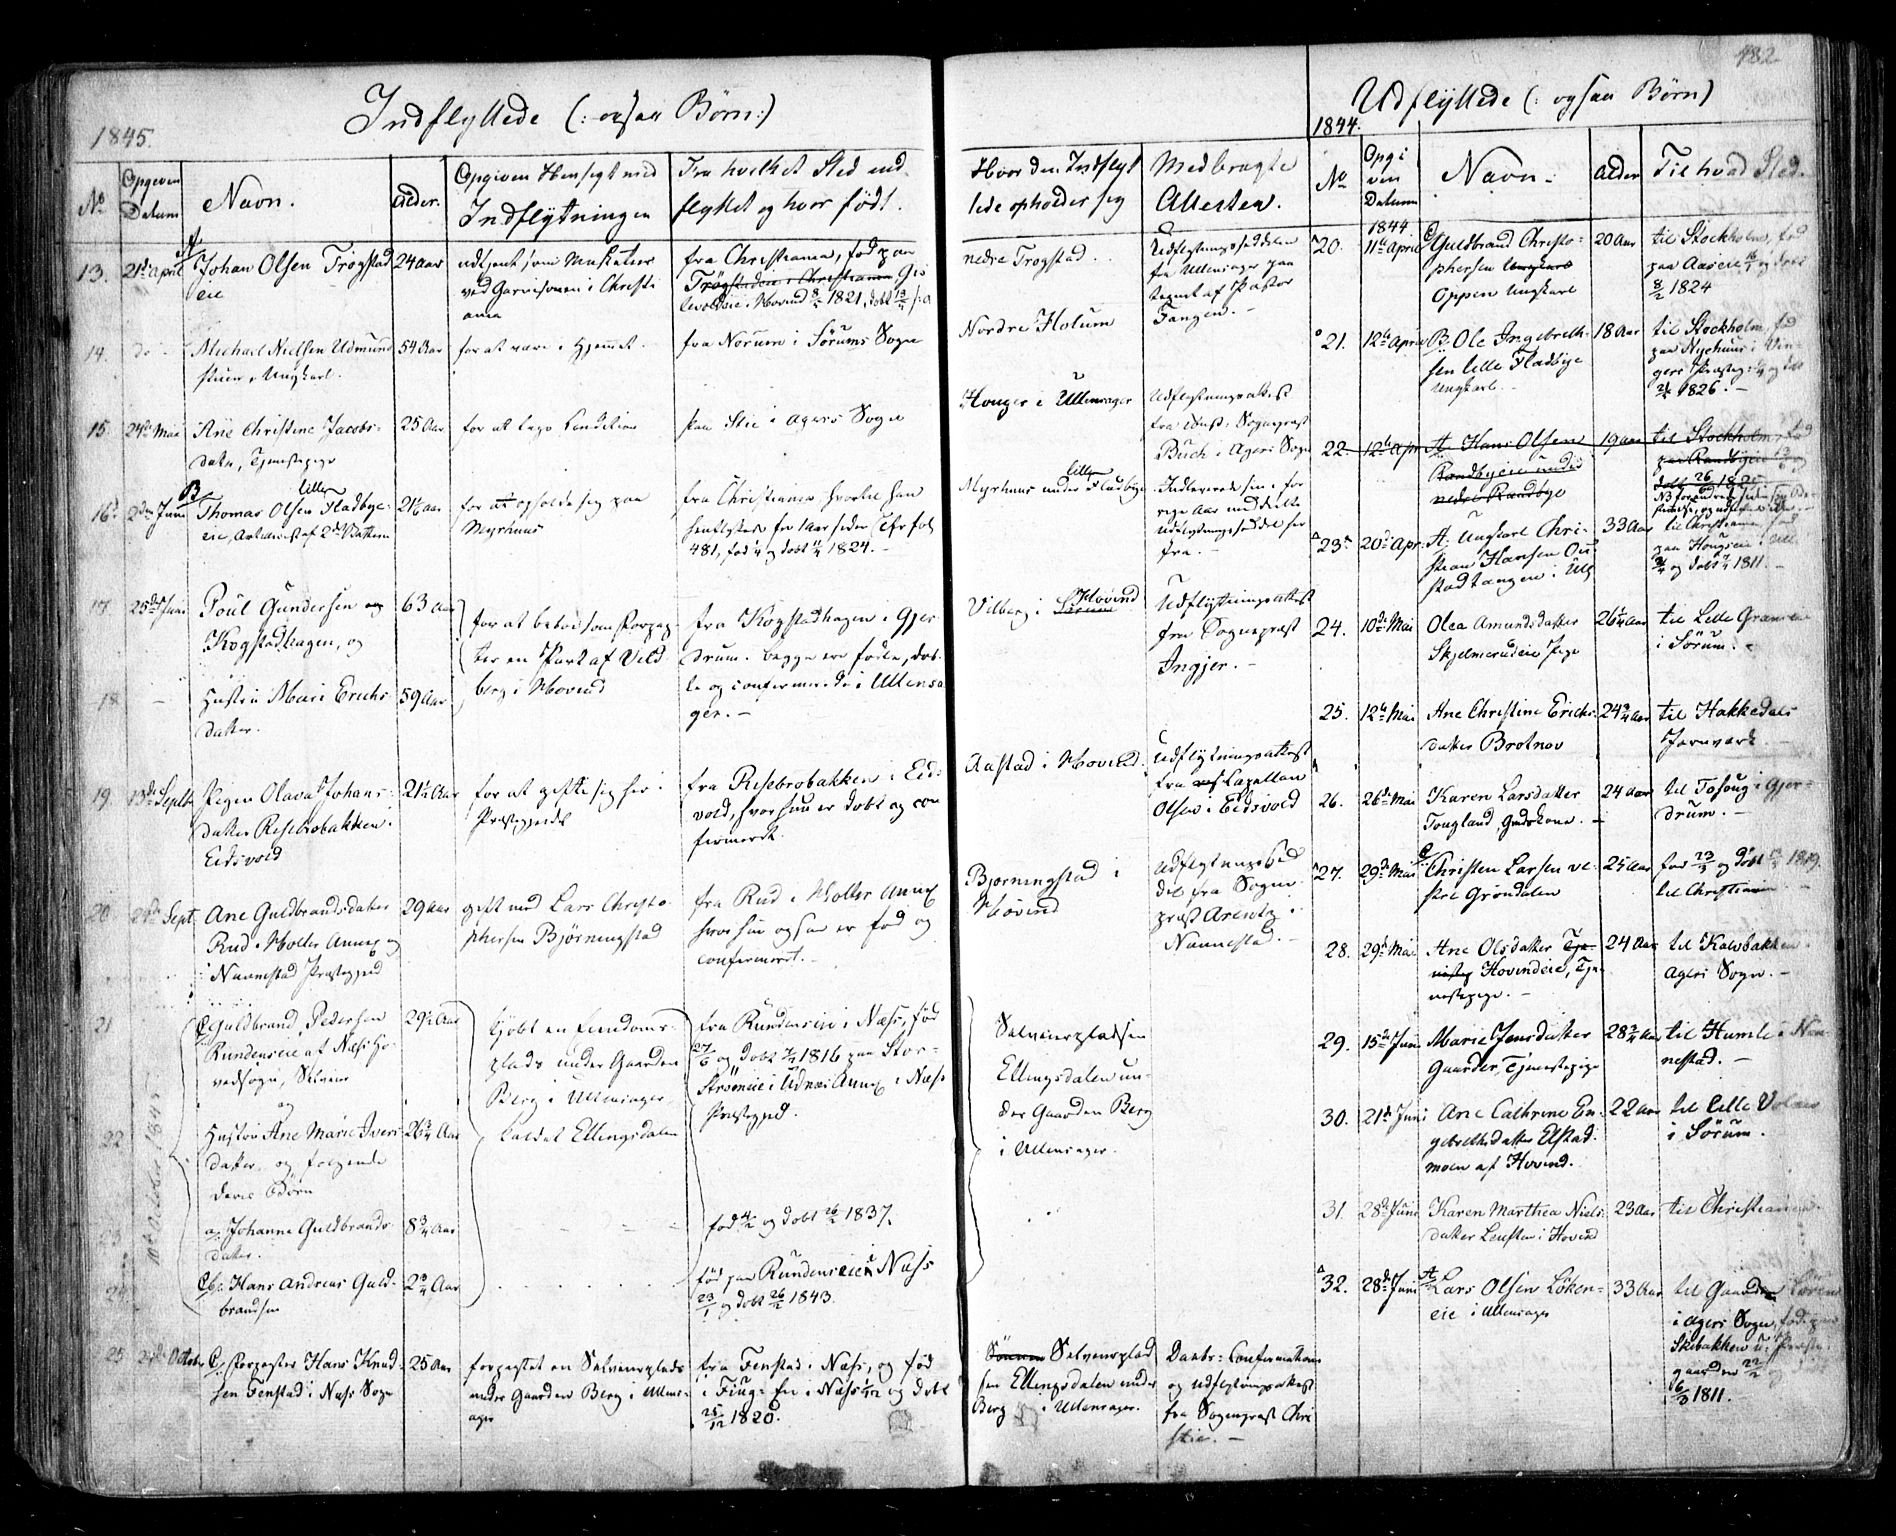 482.
Indflyttede (: ogsaa Børn:)
1845.
No
Opgiven Datum
Navn.
Alder.
Opgiven Hensigt med Indflytningen
Fra hvilket Sted indflyttet og hvor født.
Hvor den Indflyttede opholder sig
Medbragte Attester.
13.
21de April
A Johan Olsen Trogstad
eie
24 Aar
udtjent som Musketeer
ved Garnisonen i Christi
ania
fra Christiania, fød paa
i Hovind 8/2 1821, døbt
nedre Trogstad.
Udflytningsseddelen
fra Ullensager paa
tegnet af Pastor
Fangen. -
14.
do -
Michael Nielsen Udmund
stuen, Ungkarl.
54 Aar
for at være i Hjemmet.
fra Norum i Sørums Sogn
Nordre Holum
15.
24de Mai
Ane Christine Jacobs-
datter, Tjenestepige
25 Aar
for at tage Condition
fra Stie i Agers Sogn
Houger i Ullensager
Udflytningsattest
fra Const: Sogneprest
Buch i Agers Sogn
16.
2den Juni
B Thomas Olsen lille Fladbye-
eie, Artillerist af 2det Batterie
21½ aar
for at opholde sig paa
Myrhuus
fra Christiania, hvortil han
henflyttede for 1 Aar siden Cfr fol
481, fød og døbt 1824. -
Myrhuus under lille Fladbye
Indleverede sin i for
rige Aar meddeelte
Udflytningsseddel her
fra. -
17.
25de Juni
Poul Gundersen og
Kogstadhagen, og
63 Aar
for at beboe som Forpag-
ter en Part af Vild
berg i Hovind
fra Kogstadhagen i Gjer
drum. begge ere fødte, døb-
te og confirmerede i Ullensa
ger. -
Vilberg i Hovind
Udflytningsattest
fra Sogneprest
Ingier. -
18
-
Hustru Mari Erichs
datter.
59 Aar
19.
13de Septb
Pigen Olava Johans-
datter Risebrobakken
Eidsvold
21½ Aar
for at gifte sig her i
Præstegjeldet
fra Risebrobakken i Eids
vold, hvor hun er døbt og con
firmeret.
Aastad i Hovind.
Udflytningsattest
fra Capellan
Olsen i Eidsvold
20
Sept.
Ane Guldbrandsdatter
Rud i Holter Annex og
i Nannestad Præstegjed
29 aar
gift med Lars Christo
phersen Bjørningstad
fra Rud i Holter Annex
hvor hun ogsaa er fød og
confirmeret. -
Bjørningstad i
Hovind
Udflytningssed
del fra Sogne
præst Arentz i
Nannestad. -
21
10de October 1845
C Guldbrand Pedersen
Rundenseie af Næss Ho
vedsogn, Selveier
og
29½ Aar
kjøbt en Eiendoms-
plads under Gaarden
Berg i Ullensager
kaldet Ellingsdalen
fra Rundenseie i Næss, fød
27/6 og døbt 7/7 1816 paa Stor-
Strømeie i Udnæs Annex i Næss
Præstegjed.
Selveierpladsen
Ellingsdalen un-
der Gaarden Berg
i Ullensager.
22
Hustru Ane Marie Ivers
datter, og følgende
deres Børn
26¾ Aar
23
a, Johanne Guldbrands
datter.
8¾ Aar
fød 4/2 og døbt 26/2 1837.
24
C b, Hans Andreas Guld-
brandsen
2¾ Aar
fød paa Rundenseie i Næss
23/1 og døbt 26/2 1843.
25
October
C Forpagter Hans Knud
sen Fenstad i Næss Sogn
25 Aar
forpagtet en Selveierplads
under Gaarden Berg i Ullens
ager
fra Fenstad i Næss, og fød
i Fiug-Eie i Næss 1/12 og døbt
25/12 1820.
Selveierplad
sen Ellingsdalen under
Berg i Ullensager.
Daabs- Confirmations
og Udflytningsattest
fra Sogneprest Chri
stie. -
Udflyttede (: ogsaa Børn)
1844.
No
Opgiven Datum
Navn.
Alder
Til hvad Sted.
1844
20.
11te April
C Guldbrand Christo-
phersen Ungkarl
Oppen Ungkarl
20 Aar
til Stockholm, fød
paa Aaseie og døbt
8/2 1824
21.
12te April
B Ole Ingebreth-
sen lille Fladbye
Ungkarl. -
18 Aar
til Stockholm, fød
paa Nyehuus i Vin-
gers Præsteg: og døbt
1826. -
22.
12te Apr
A. Hans Olsen
Randbyeie under
nedre Randbye
19 aar
til Stockholm, fød
paa Randbyeie
døbt 26 182
23.
20de Apr.
A. Ungkarl Chri-
stian Hansen Ou
stadtangen i Ull
33 Aar
til Christiania, fød
paa Hougseie i Ull.
og døbt 1811. -
24.
10de Mai
Olea Amundsdatter
Skjelmerudeie Pige
26¼ Aar
til Lille
i Sørum. -
25.
12te Mai
Ane Christine Erichs
datter Brotnov
24¾ Aar
til Hakkedals
Jernværk
26.
26de Mai
Karen Larsdatter
Tougland, Gaardkone. -
24 Aar
til i Gjer-
drum. -
27.
29de Mai
C Christen Larsen ve-
stre Grøndalen
25 Aar
fød 23/ og døbt 1819.
til Christiania
28.
29de Mai
Ane Olsdatter Tje-
nestep Hovindeie, Tje-
nestepige. -
24 Aar
til Kalvbakken
Agers Sogn. -
29.
15de Juni
Marie Jensdatter
Gaarder, Tjenestepige
28¾ Aar
til Humle i Nan
nestad. -
30.
21de Juni
Ane Cathrine En-
gebrethsdatter Elstad
moen af Hovind.
22 Aar
til lille
i Sørum.
31.
28de Juni
Karen Marthea Niels
datter Lensten i Hovind
23 Aar
til Christiania
32.
28de Juni
A Lars Olsen Løken-
eie i Ullensager
33 Aar
til Gaarden
i Agers Sogn, fød paa
Skibakken u: Præste
gaarden 22/2 og
6/3 1811.